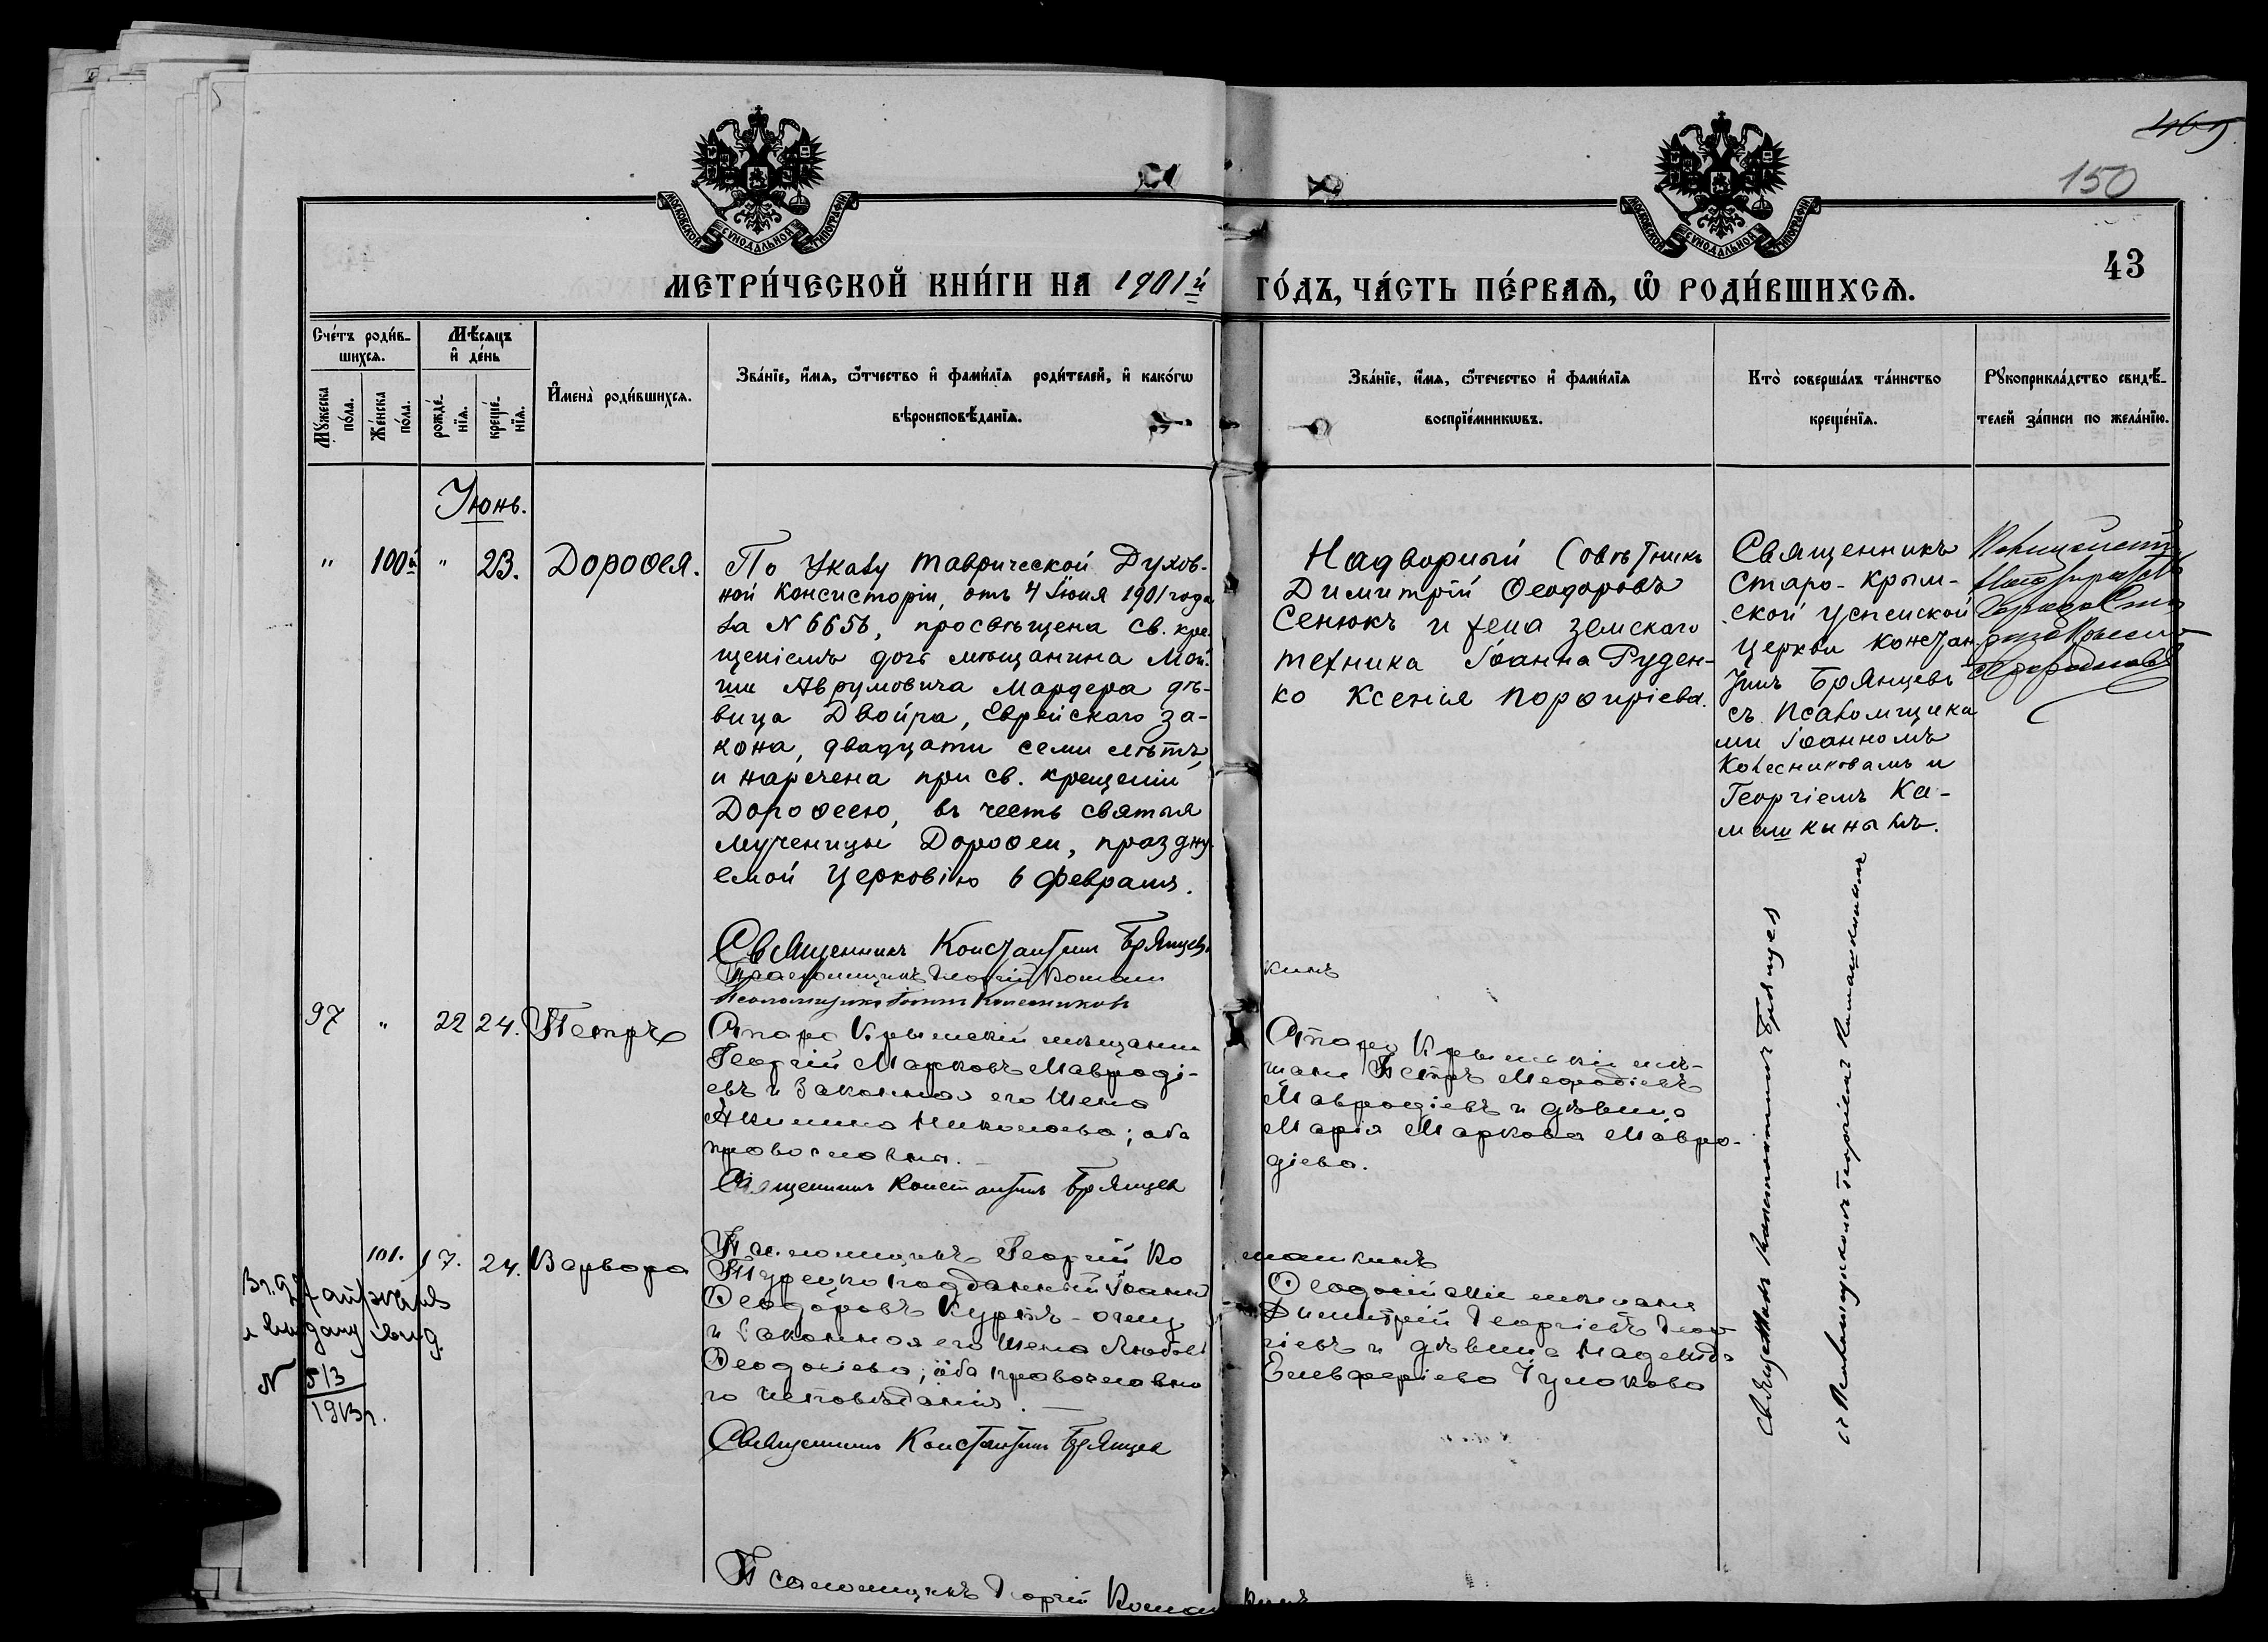 469
150
МОСКОВСКОЙ СѴНОДАЛЬНОЙ ТИПОГРАФІИ
МОСКОВСКОЙ СѴНОДАЛЬНОЙ ТИПОГРАФІИ
43
МЕТРИ́ЧЕСКОЙ КНИ́ГИ НА 1901й ГО́ДЪ, ЧА́СТЬ ПЕ́РВАѦ, Ѡ РОДИ́ВШИХСѦ.
Сче́тъ роди́в-
шихсѧ.
Мꙋ́жеска
по́ла.
Же́нска
по́ла.
Мѣ́сѧцъ
и҆ де́нь
рожде́-
нїѧ.
креще́-
нїѧ.
И҆мена̀ роди́вшихсѧ.
Зва́нїе, и҆́мѧ, ѻ҆́тчество и҆ фами́лїѧ роди́телей, и҆ како́гѡ
вѣроисповѣ́данїѧ.
Зва́нїе, и҆́мѧ, ѻ҆́течество и҆ фами́лїѧ
воспрїе́мникѡвъ.
Кто̀ соверша́лъ та́инство
креще́нїѧ.
Рꙋкоприкла́дство свидѣ́-
телей за́писи по жела́нїю.
Іюнь.
" 100й " 23. Дороѳея.
По Указу Таврической Духов-
ной Консисторіи, отъ 4 Іюня 1901 года
за N 6656, просвѣщена св. кре-
щеніемъ дочь мѣщанина Мой-
ши Аврумовича Мардера дѣ-
вица Двойра, Еврейскаго за-
кона, двадцати семи лѣтъ,
и наречена при св. крещеніи
Дороѳеею, въ честь святыя
мученицы Дороѳеи, праздну-
емой Церковію 6 февраля.
Священникъ Константинъ Брянцевъ
Псаломщикъ Георгій Комашкинъ
Псаломщикъ Іоаннъ Колесниковъ
Надворный Совѣтникъ
Димитрій Ѳеодоровъ
Сенюкъ и жена земскаго
техника Іоанна Руден-
ко Ксенія Порфиріева.
Священникъ
Старо-Крым-
ской Успенской
церкви Констан-
тинъ Брянцевъ
съ псаломщика
ми Іоанномъ
Колесниковымъ и
Георгіемъ Ка-
машкинымъ.
97 " 22 24. Петръ
Старо Крымскій мѣщанин
Георгій Марковъ Мавроді-
евъ и законная его жена
Акилина Николаева; оба
православные.
Священникъ Константинъ Брянцевъ
Старо Крымскіи мѣ-
щане Петръ Меѳодіевъ
Мавродіевъ и дѣвица
Марія Маркова Мавро-
діева.
Священникъ Константинъ Брянцев
съ Псаломщикомъ Георгіемъ Камашкинымъ
101. 17. 24. Варвара
Псаломщикъ Георгій Комашкинъ
Турецко подданный Іоаннъ
Ѳеодоровъ Куртъ-оглу
и законная его жена Любовь
Ѳеодосіева; оба православна
го исповѣданія.
Священникъ Константинъ Брянцев
Ѳеодосійскіе мѣщане
Димитрій Георгіевъ Геор
гіевъ и дѣвица Надежда
Елевферіева Гулакова
N 513
1913г.
Псаломщикъ Георгій Комашкинъ